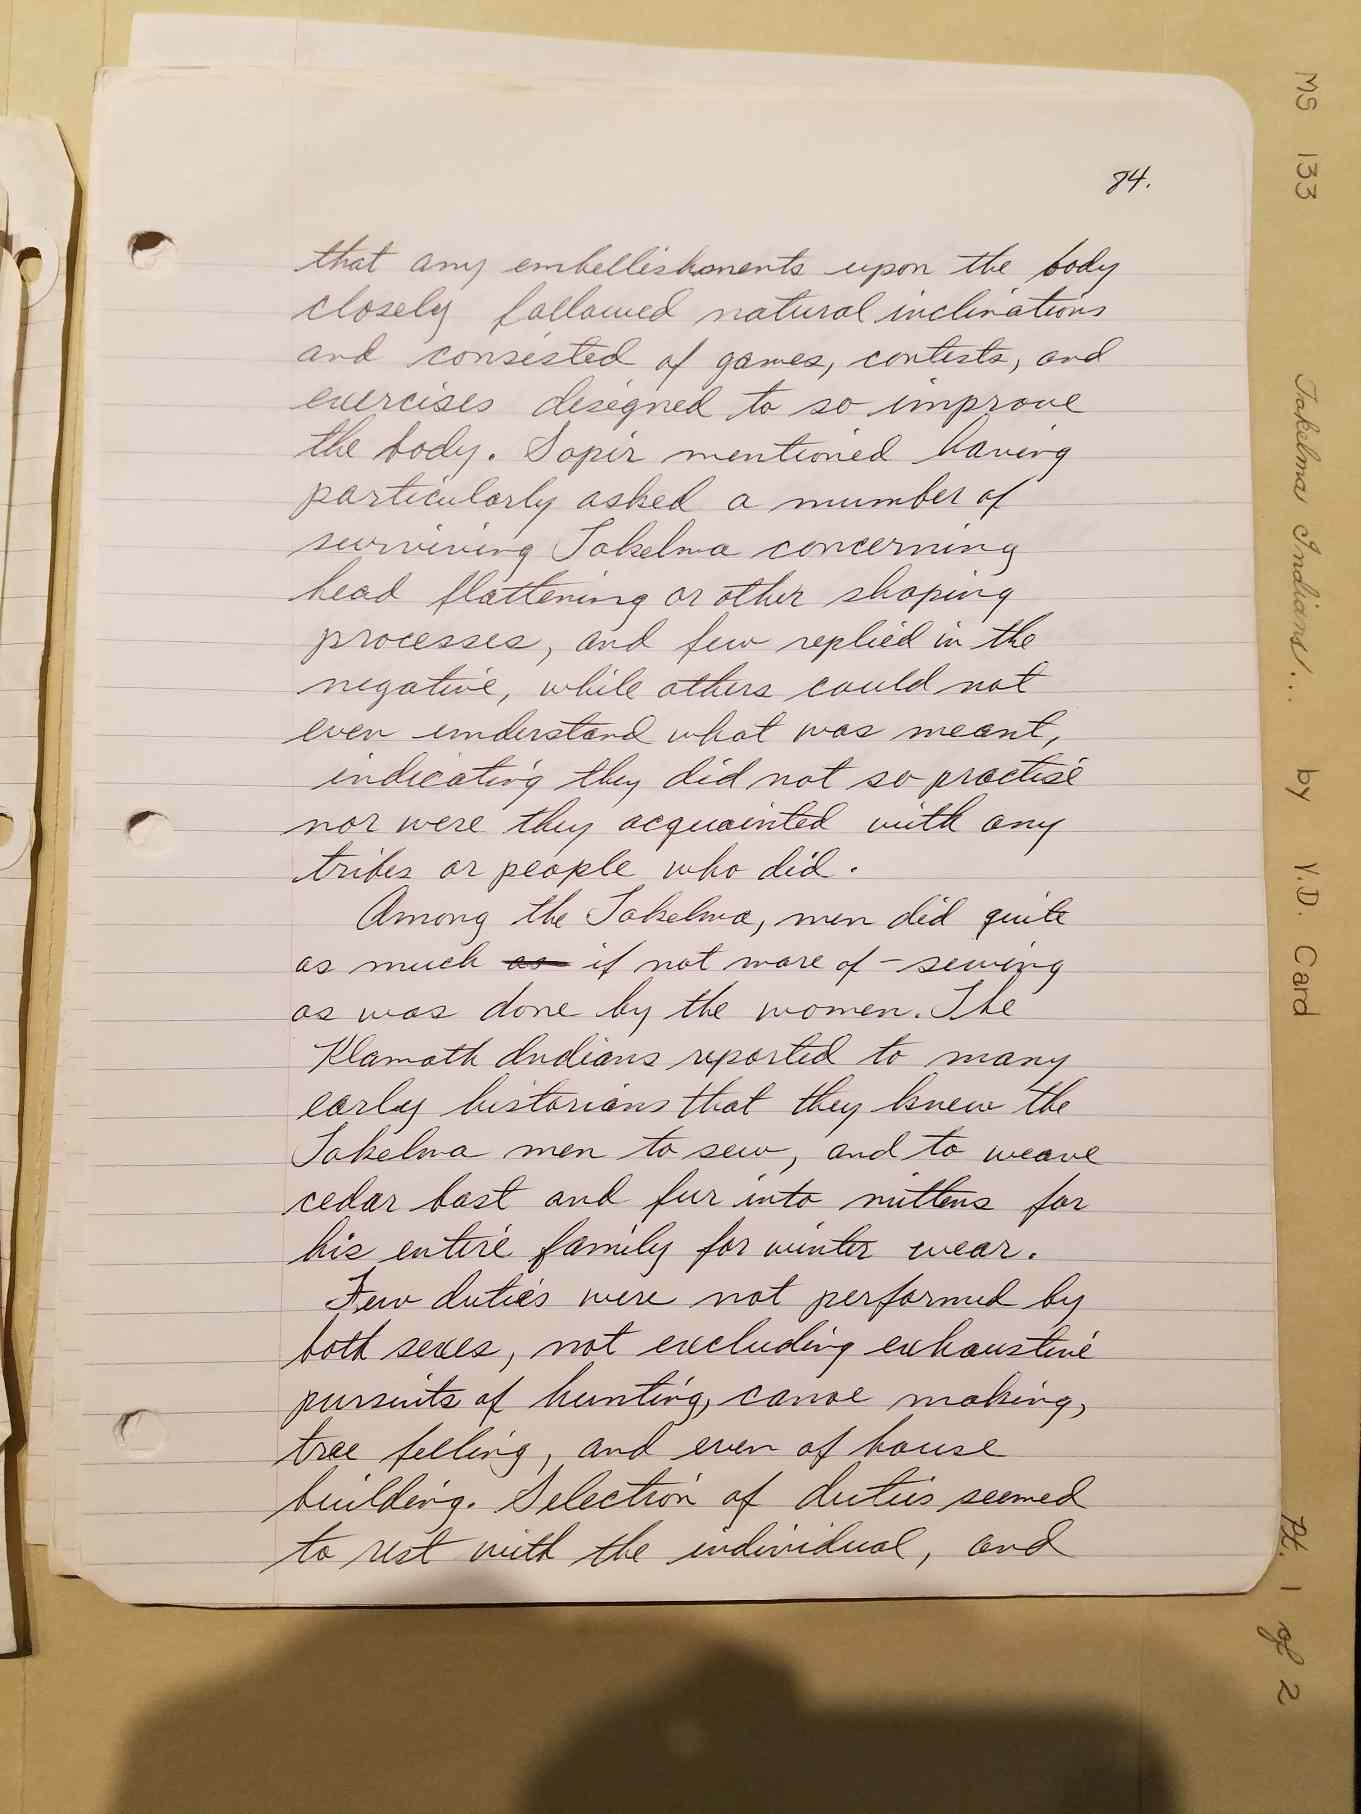 84.
that any embellishments upon the body
closely followed natural inclinations
and consisted of games, contests, and
exercises designed to so improve
the body. Sapir mentioned having
particularly asked a number of
surviving Takelma concerning
head flattening or other shaping
processes, and few replied in the
negative, while others could not
even understand what was meant,
indicating they did not so practise
nor were they acquainted with any
tribes or people who did.
Among the Takelma, men did quite
as much as if not more of - sewing
as was done by the women. The
Klamath Indians reported to many
early historians that they knew the
Takelma men to sew, and to weave
cedar bast and fur into mittens for
his entire family for winter wear.
Few duties were not performed by
both sexes, not excluding exhaustive
pursuits of hunting, canoe making,
tree felling, and even of house
building. Selection of duties seemed
to rest with the individual, and
MS 133 Takelma Indians... by Y.D. Card Pt. 1 of 2